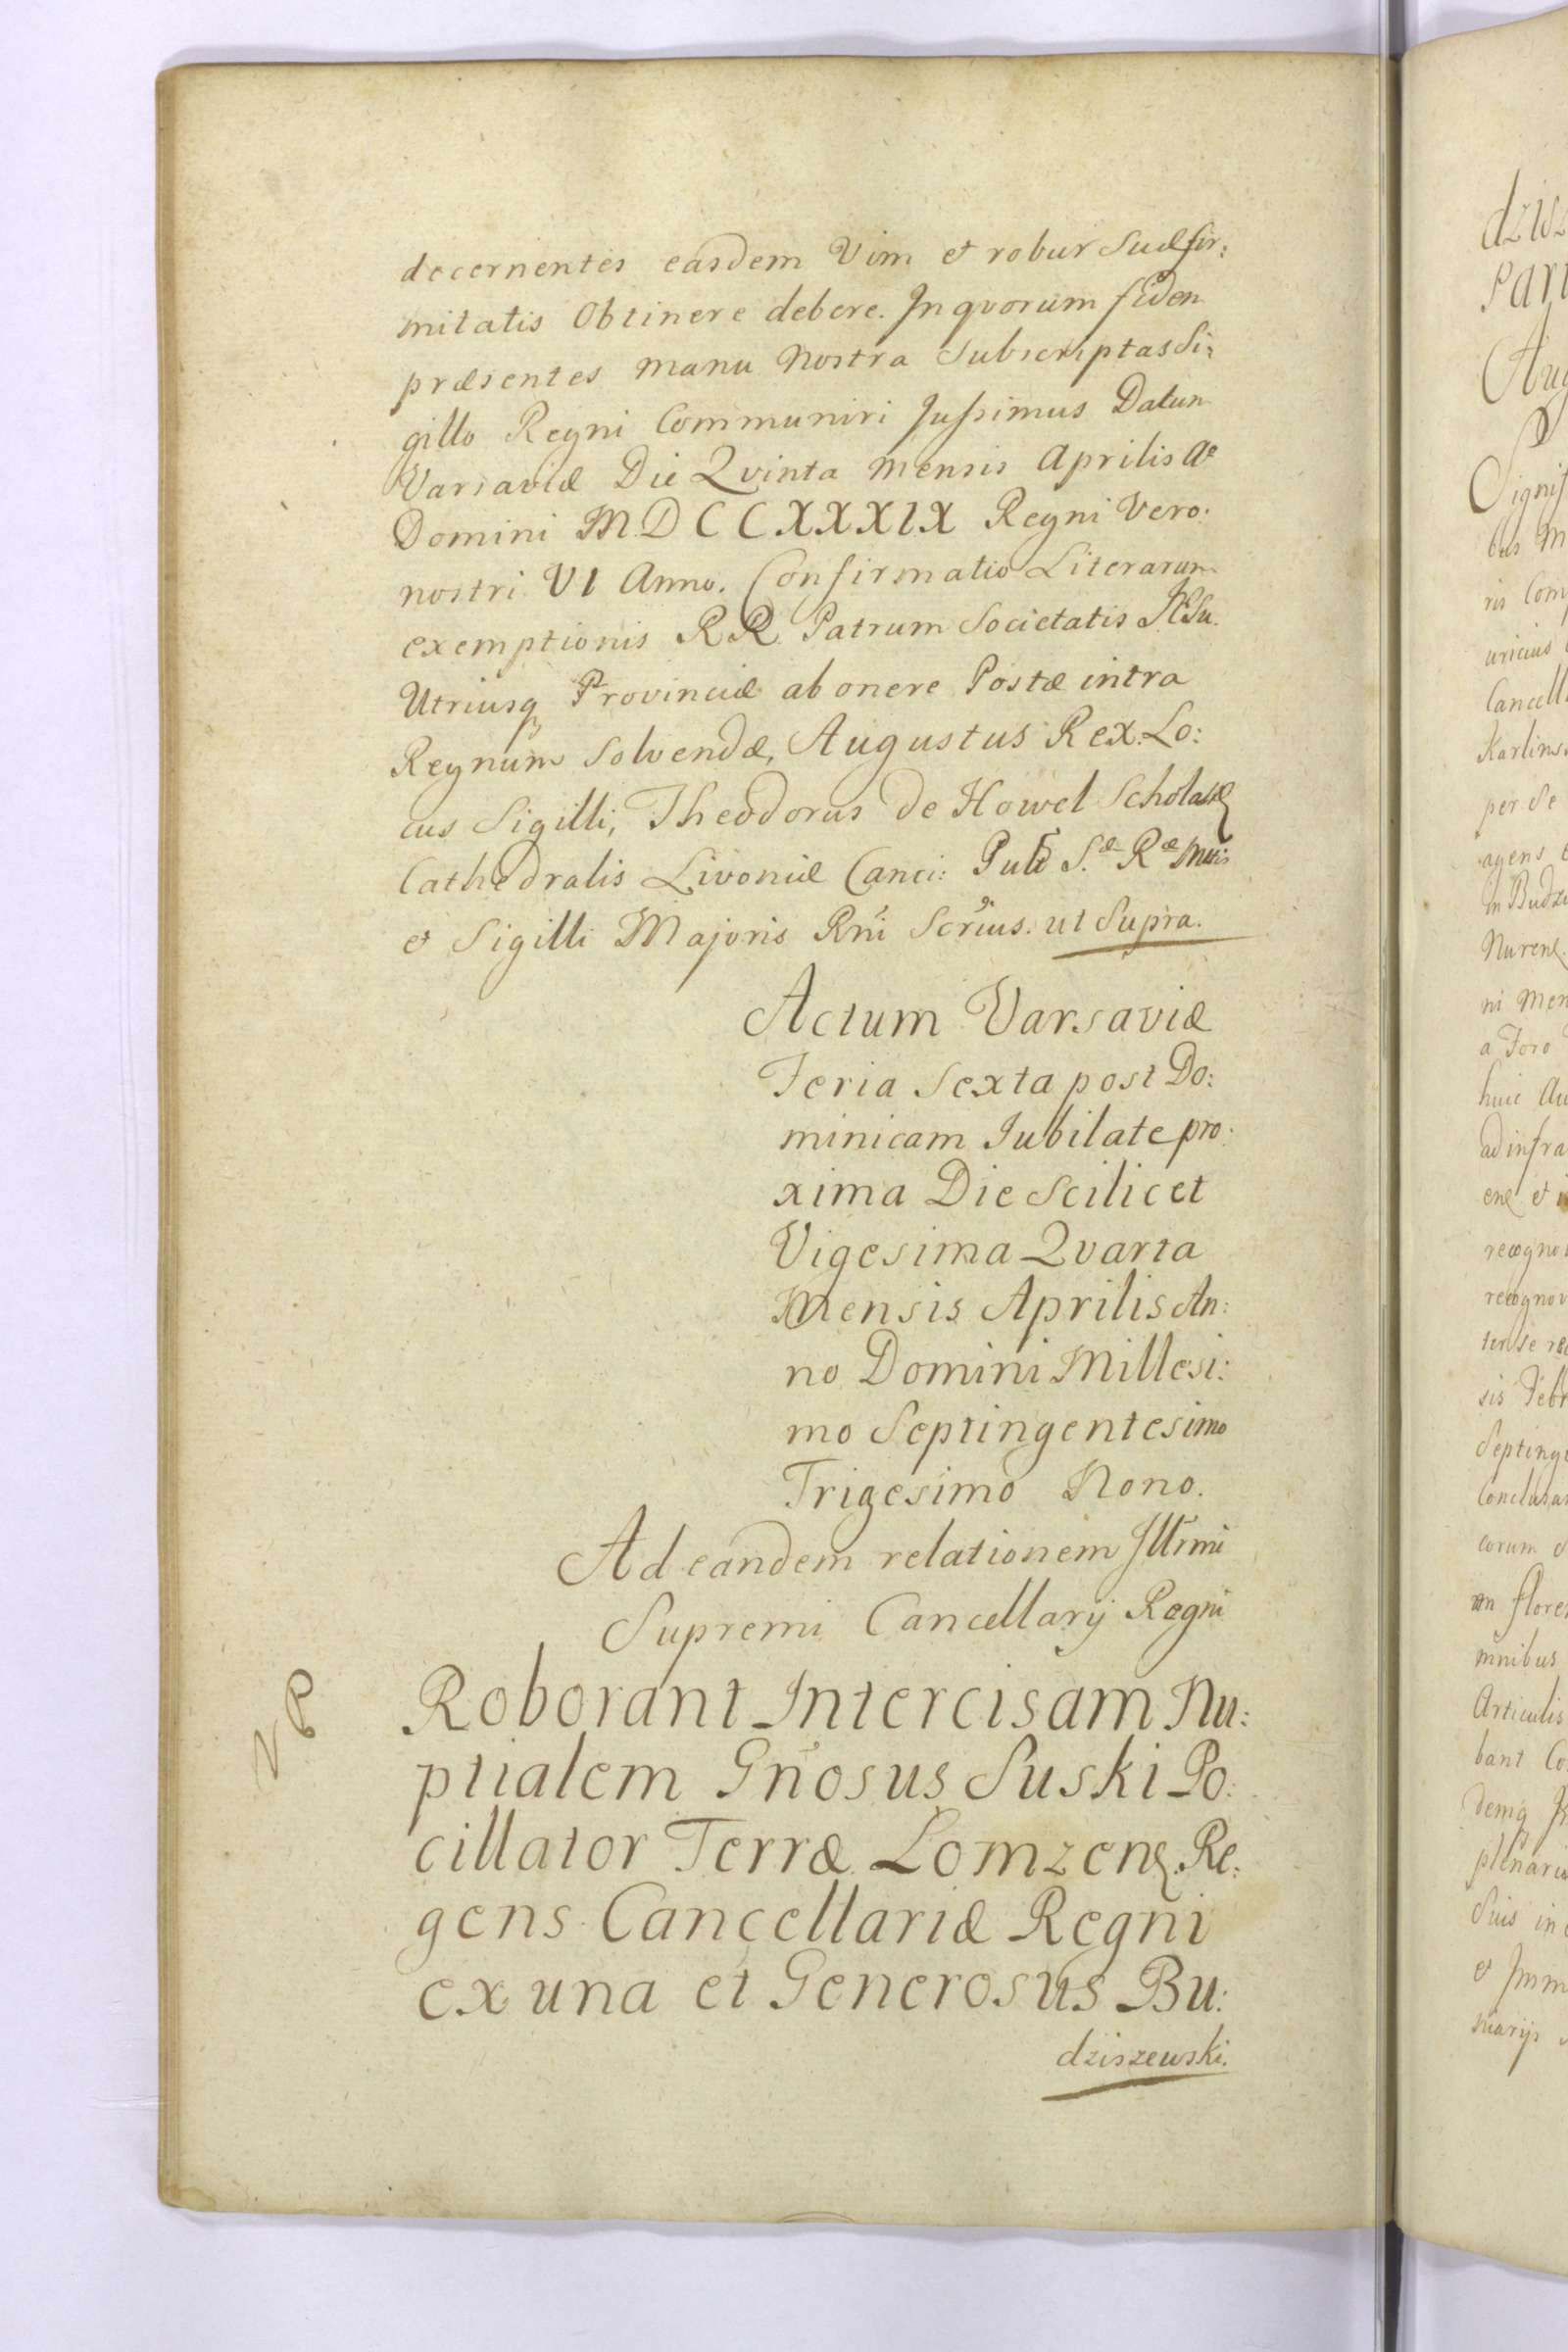 decernentes easdem Vim et robur Suæ fir:
mitatis Obtinere debere. In qvorum fidem
præsentes manu Nostra Subscriptas Si:
gillo Regni Communiri Jussimus Datum
Varsaviæ Die Qvinta mensis Aprilis Aº
Domini MDCCXXXIX Regni Vero.
nostri VI Anno. Confirmatio Literarum
exemptionis RR Patrum Societatis JESu.
Utriusq Provinciæ ab onere Postæ intra
Regnum Solvendæ, Augustus Rex. Lo:
cus Sigilli, Theodorus de Howel Scholast
Cathedralis Livoniæ Canci: S.æ R.æ Mtis
et Sigilli Majoris Rni Scrius. ut Supra.
Actum Varsaviæ
Feria Sexta post Do:
minicam Jubilate pro:
xima Die Scilicet
Vigesima Qvarta
Mensis Aprilis An:
no Domini Millesi:
mo Septingentesimo
Trigesimo Nono.
Ad eandem relationem Illrmi
Supremi Cancellarij Regni
Roborant Intercisam Nu:
ptialem Gnosus Suski Po:
cillator Terræ Lomzen. Re:
gens Cancellariæ Regni
ex una et Generosus Bu:
dziszewski.
dzisz
Part
Aug
Signif
bus M
ris Com
uricius
Cancell
Karlins
per Se
agens
in Budzi
Nuren.
ni Men
a Foro
huic Au
ad infra
et
recogno
recognov
ter Se re
sis Febr
Septinge
Conclusa
corum
flore
mnibus
Articulis
bant Co
demq
plenari
Suis in
et Imm